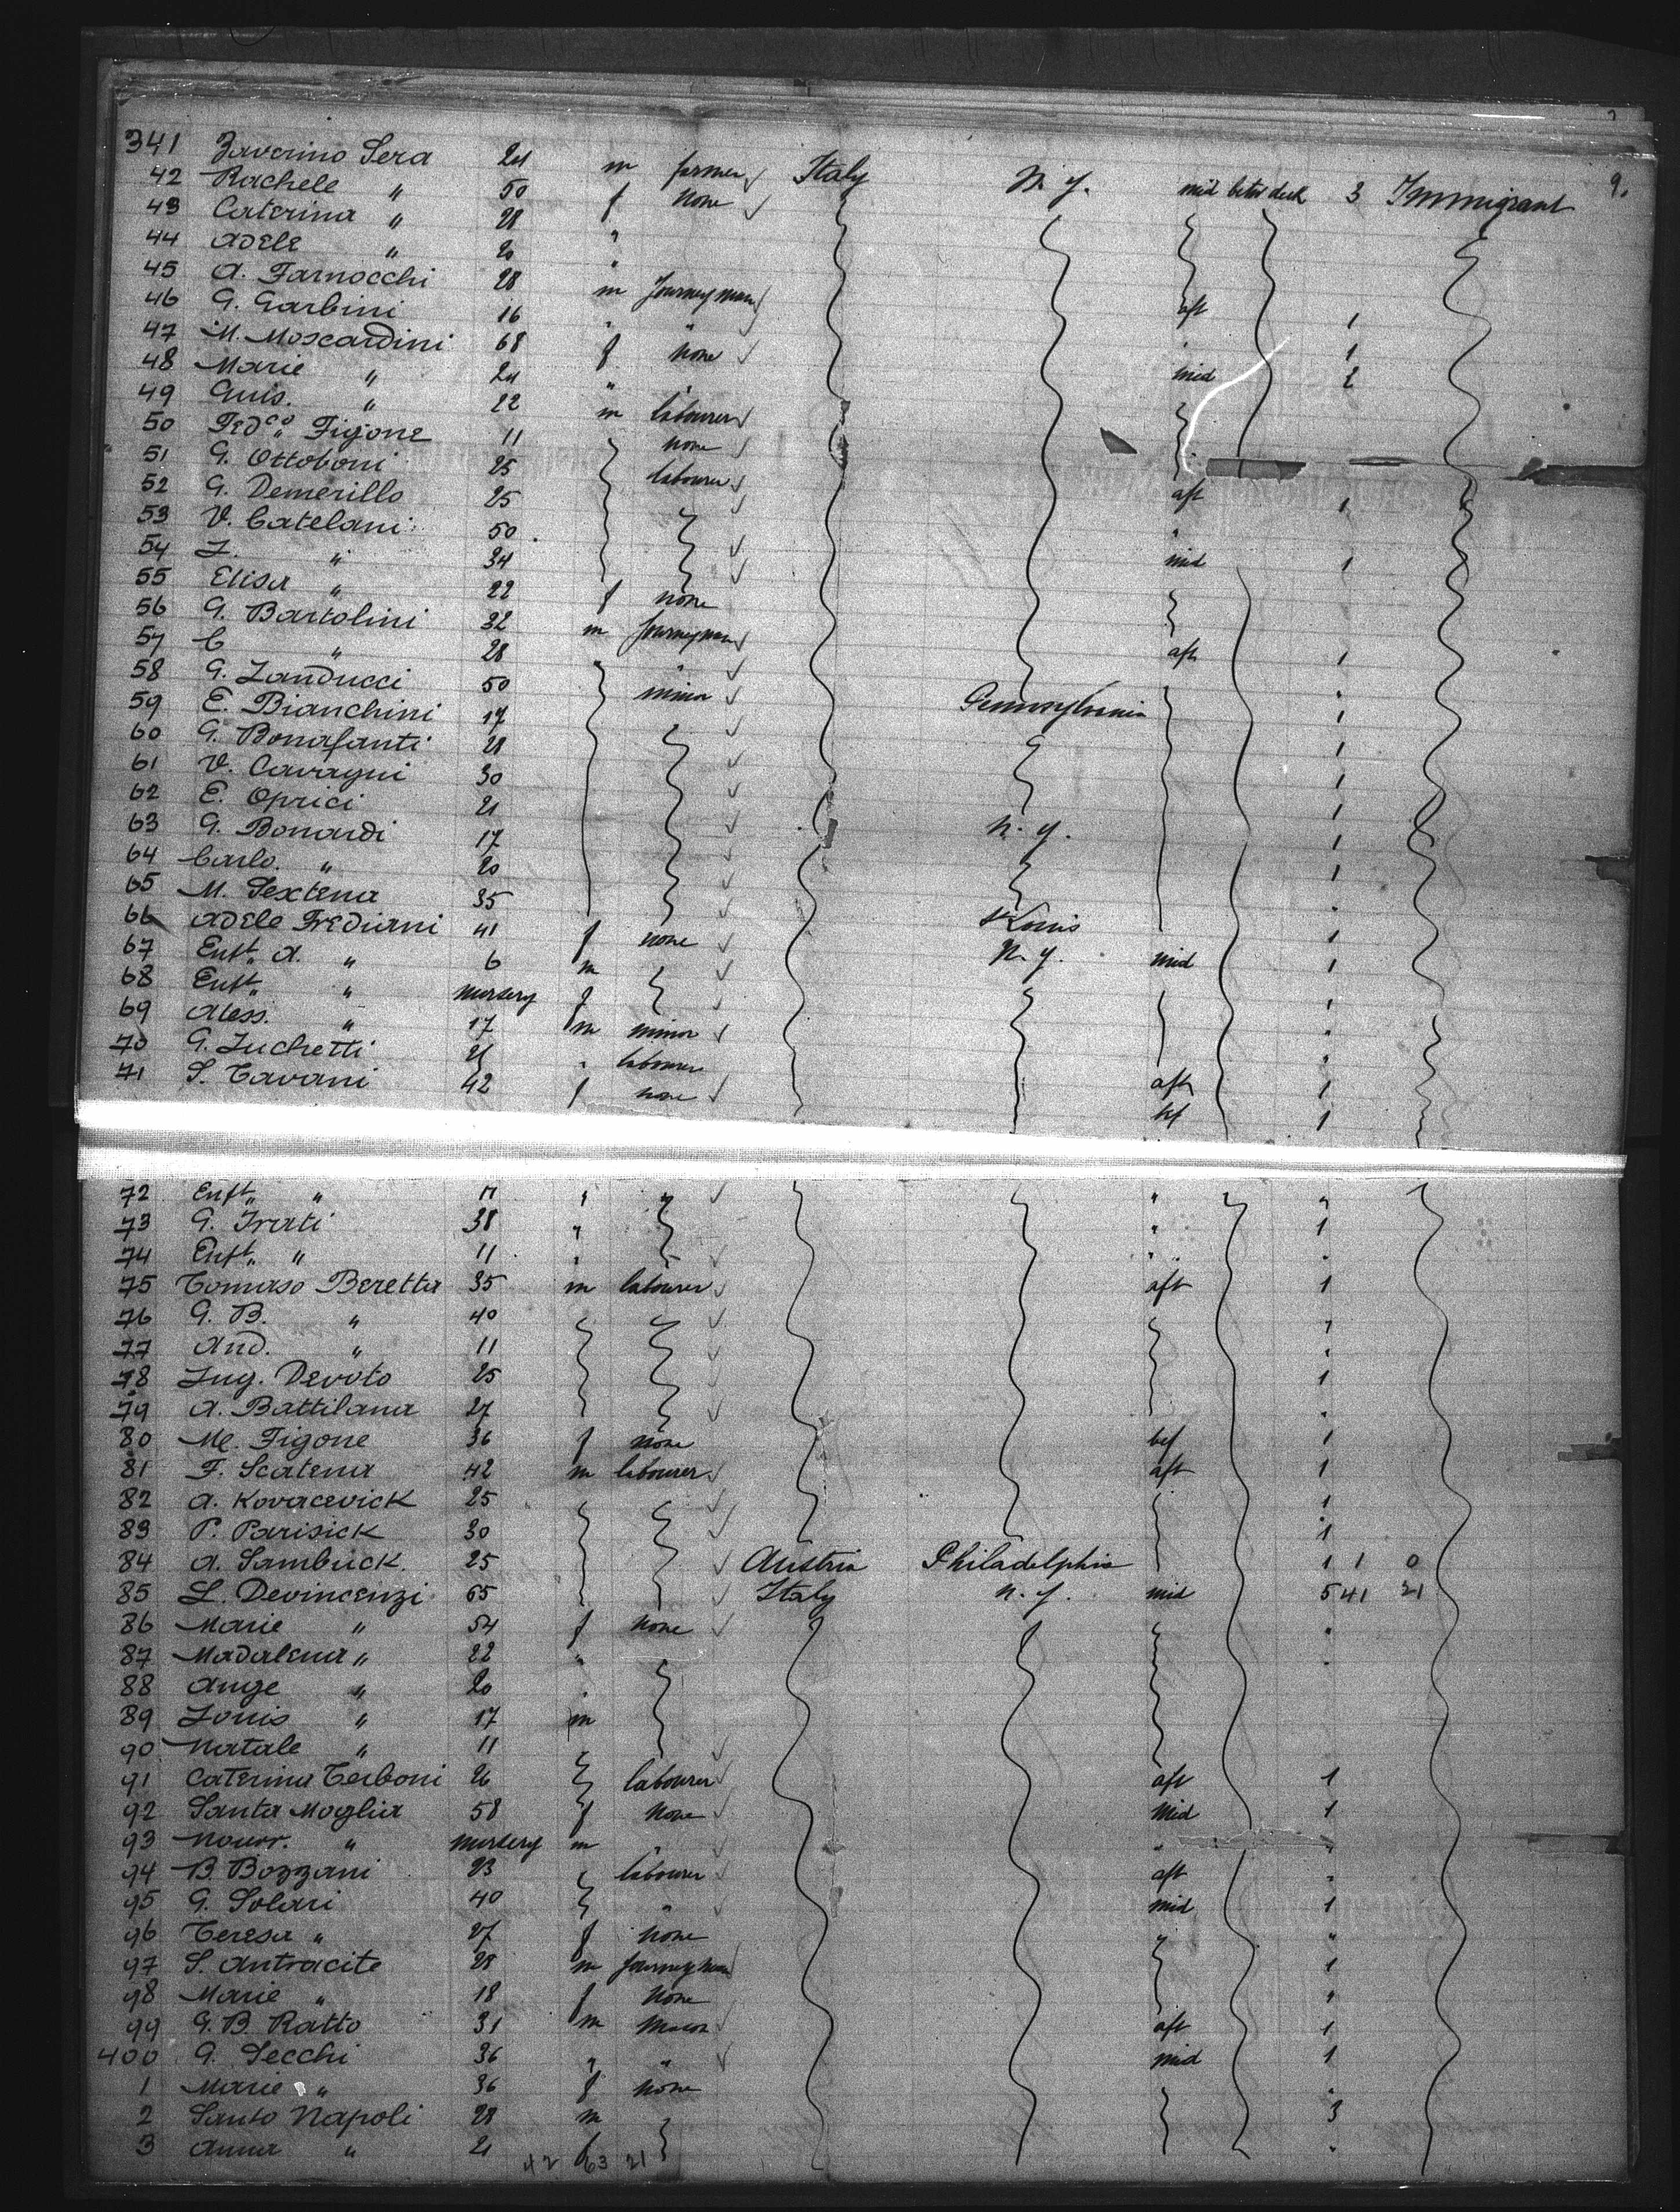 9.
341 Zaverino Sera 24 m farmer Italy N. Y. mid betw deck 3 Immigrant
42 Rachele " 50 f none
43 Caterina " 28 "
44 Adele " 20 "
45 A. Farnocchi 28 m Journeyman aft 1
46 G. Garbini 16 " " " 1
47 M. Moscardini 68 f none mid 2
48 Marie " 24 " "
49 Guis. " 22 m labourer
50 Fedco " Figone 11 none
51 G. Ottoboni 25 labourer aft 1
52 G. Demerillo 25 "
53 V. Catelani 50 mid 1
54 L. " 34
55 Elisa " 22 f none
56 G. Bartolini 32 m Journeyman aft 1
57 C " 28 " "
58 G. Landucci 50 minor Pennsylvania 1
59 E. Bianchini 17 1
60 G. Bonafanti 28 1
61 V. Cavagni 30 1
62 E. Oprici 21 1
63 G. Bonardi 17 N. Y. 1
64 Carlo. " 20
65 M. Sextena 35 St Louis 1
66 Adele Frediani 41 f none N. Y. mid 1
67 Enft. A. " 6 m
68 Enft " " nursery f
69 Aless. " 17 m minor
70 G. Luchetti 21 " labourer aft 1
71 S. Tavani 42 f none bef 1
72 Enft " " 11 " " " "
73 G. Frati 38 " " 1
74 Enft " " 11 " " "
75 Tomaso Beretta 35 m labourer aft 1
76 G. B. " 40 "
77 And. " 11 "
78 Lug. Devoto 25 1
79 A. Battilana 27 "
80 M. Figone 36 f none bef 1
81 F. Scatena 42 m labourer aft 1
82 A. Kovacevick 25 1
83 P. Parisick 30 1
84 A. Sambuck. 25 Austria Philadelphia 1 1 0
85 L. Devincenzi 65 Italy N. Y. mid 5 41 21
86 Marie " 54 f none "
87 Madalena " 22 " "
88 Ange " 20 "
89 Louis " 17 m
90 Natale " 11
91 Caterina Terboni 26 labourer aft 1
92 Santa Moglia 58 f none mid 1
93 Nourr. " nursery m " " "
94 B. Bozzani 23 labourer aft "
95 G. Solari 40 " mid 1
96 Teresa " 27 f none "
97 S. Antracite 28 m Journeyman 1
98 Marie " 18 f none "
99 G. B. Ratto 31 m aft 1
400 G. Secchi 36 " " mid 1
1 Marie " 36 f none "
2 Santo Napoli 28 m 3
3 Anna " 21 f "
42 63 21